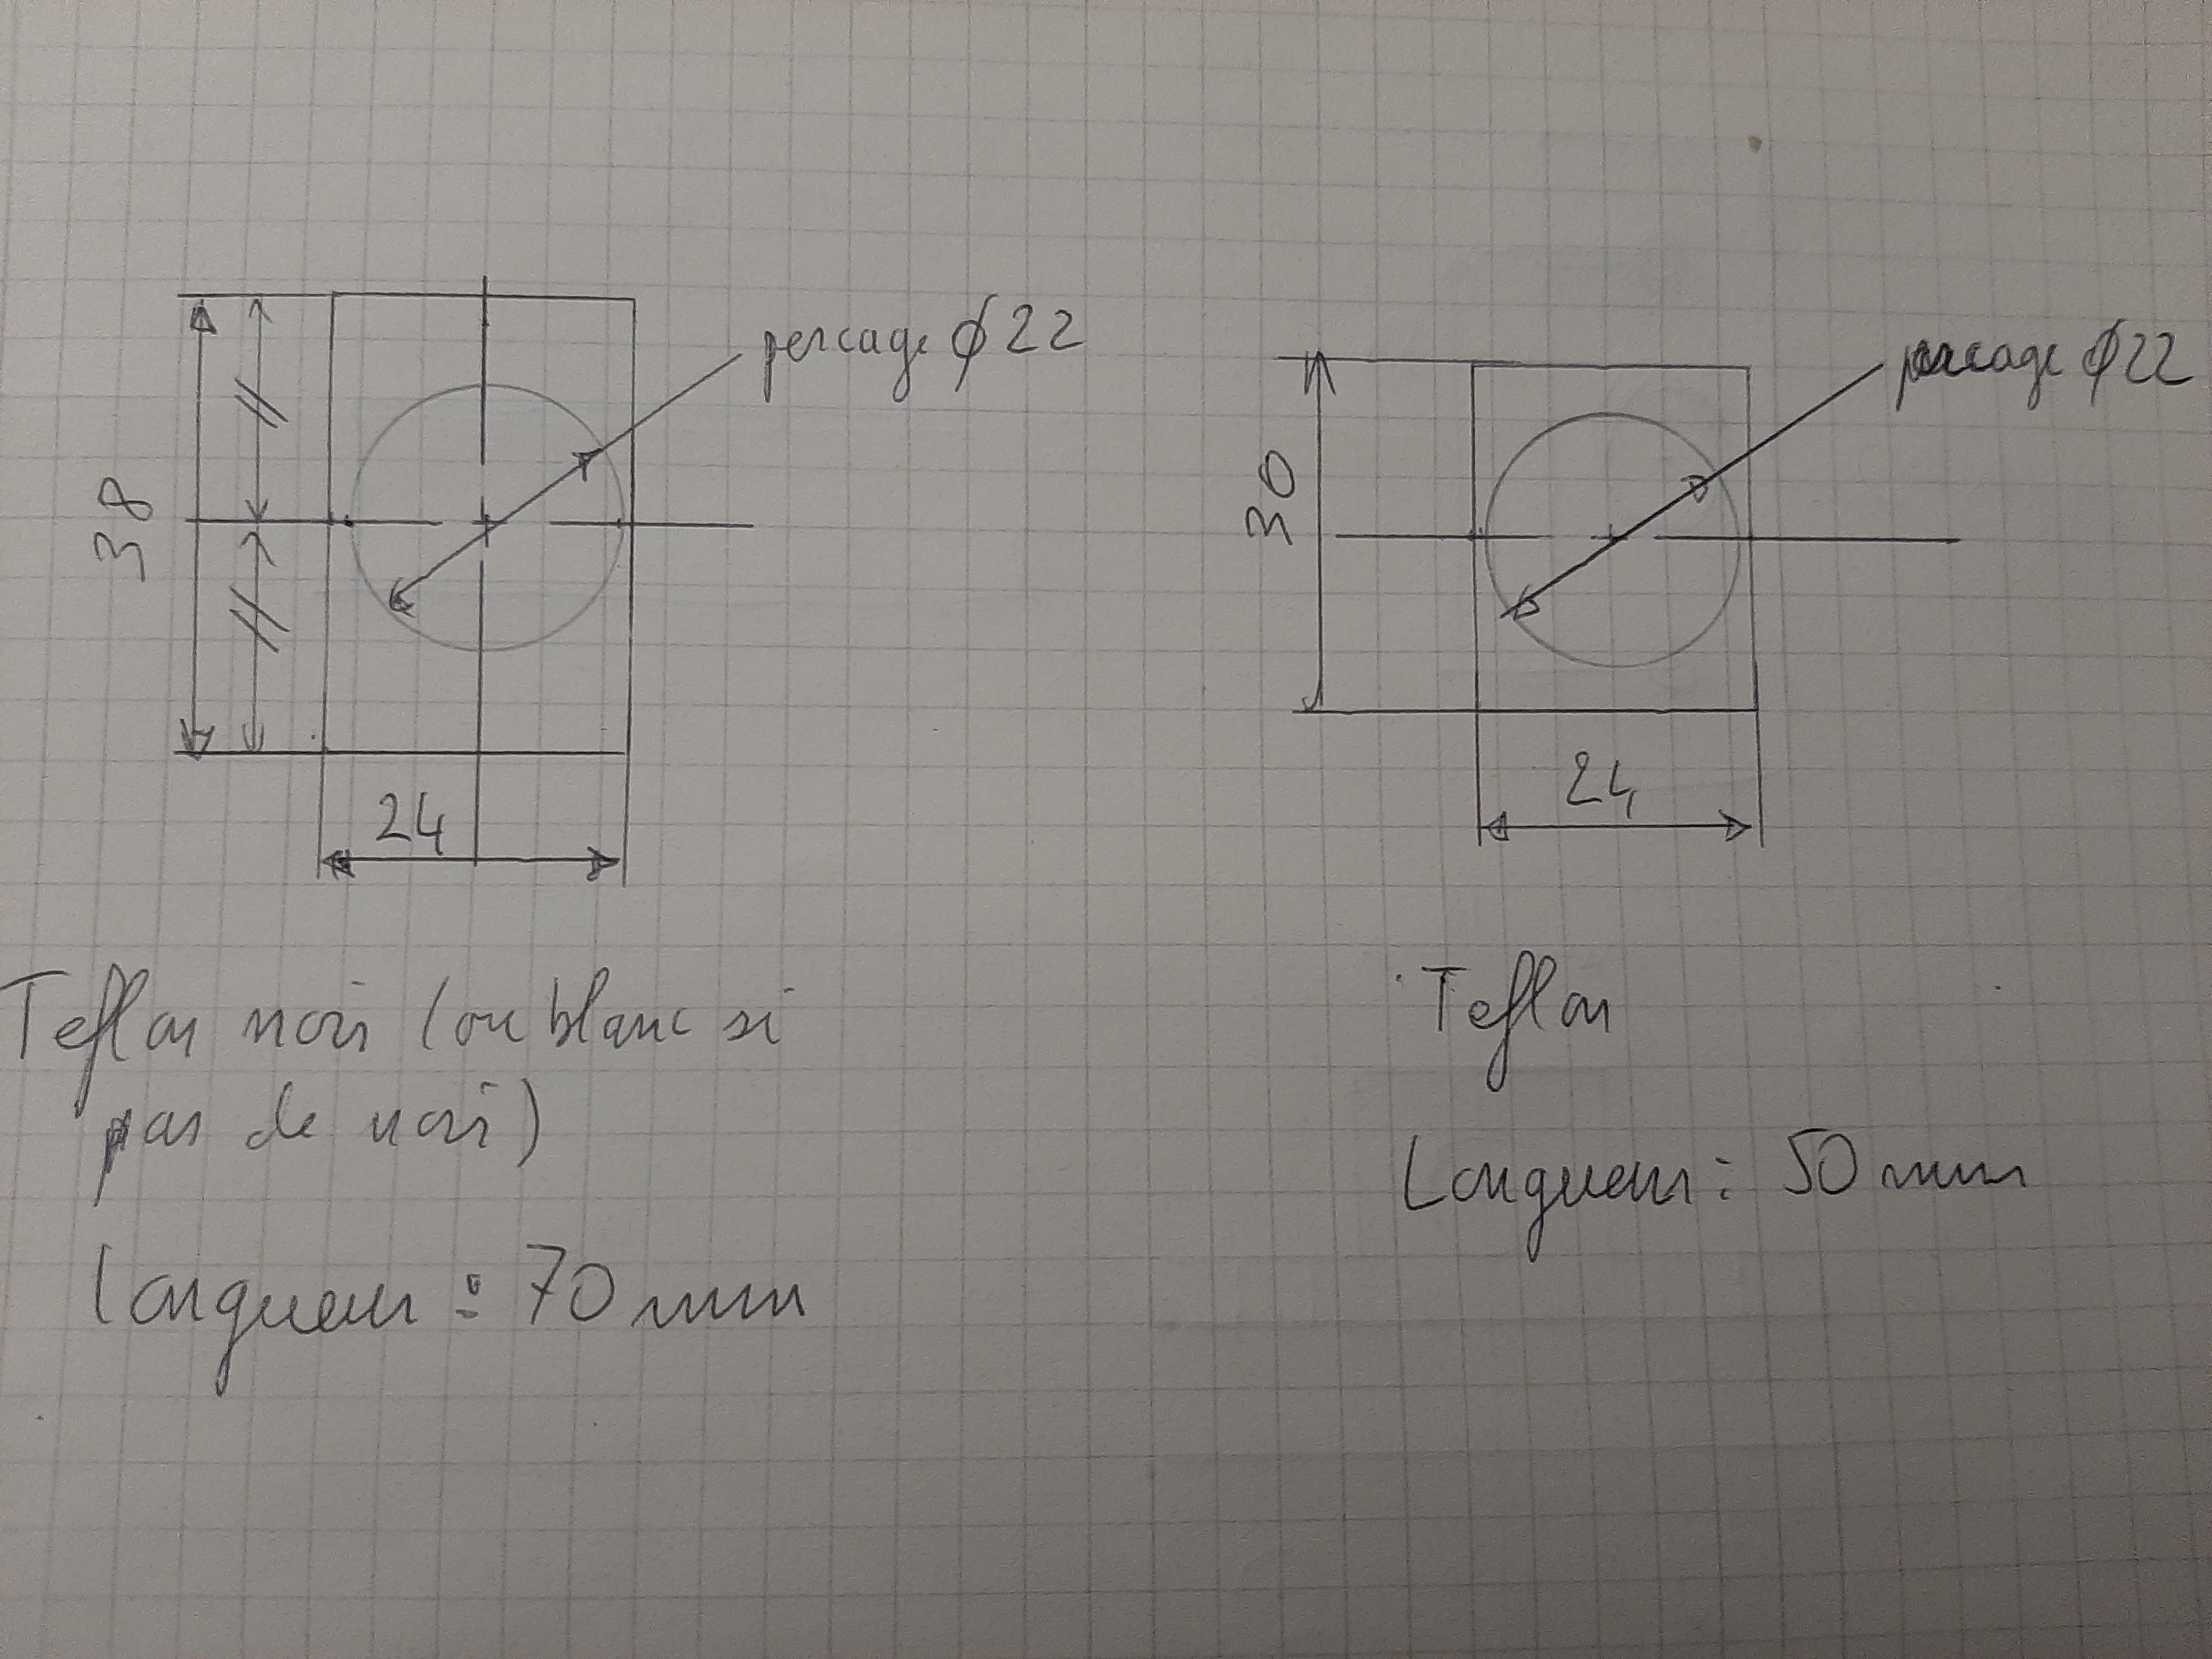 percage ϕ22
38
24
Teflon noir (ou blanc si
pas de noir)
longueur : 70 mm
percage ϕ22
30
24
Teflon
Longueur : 50 mm